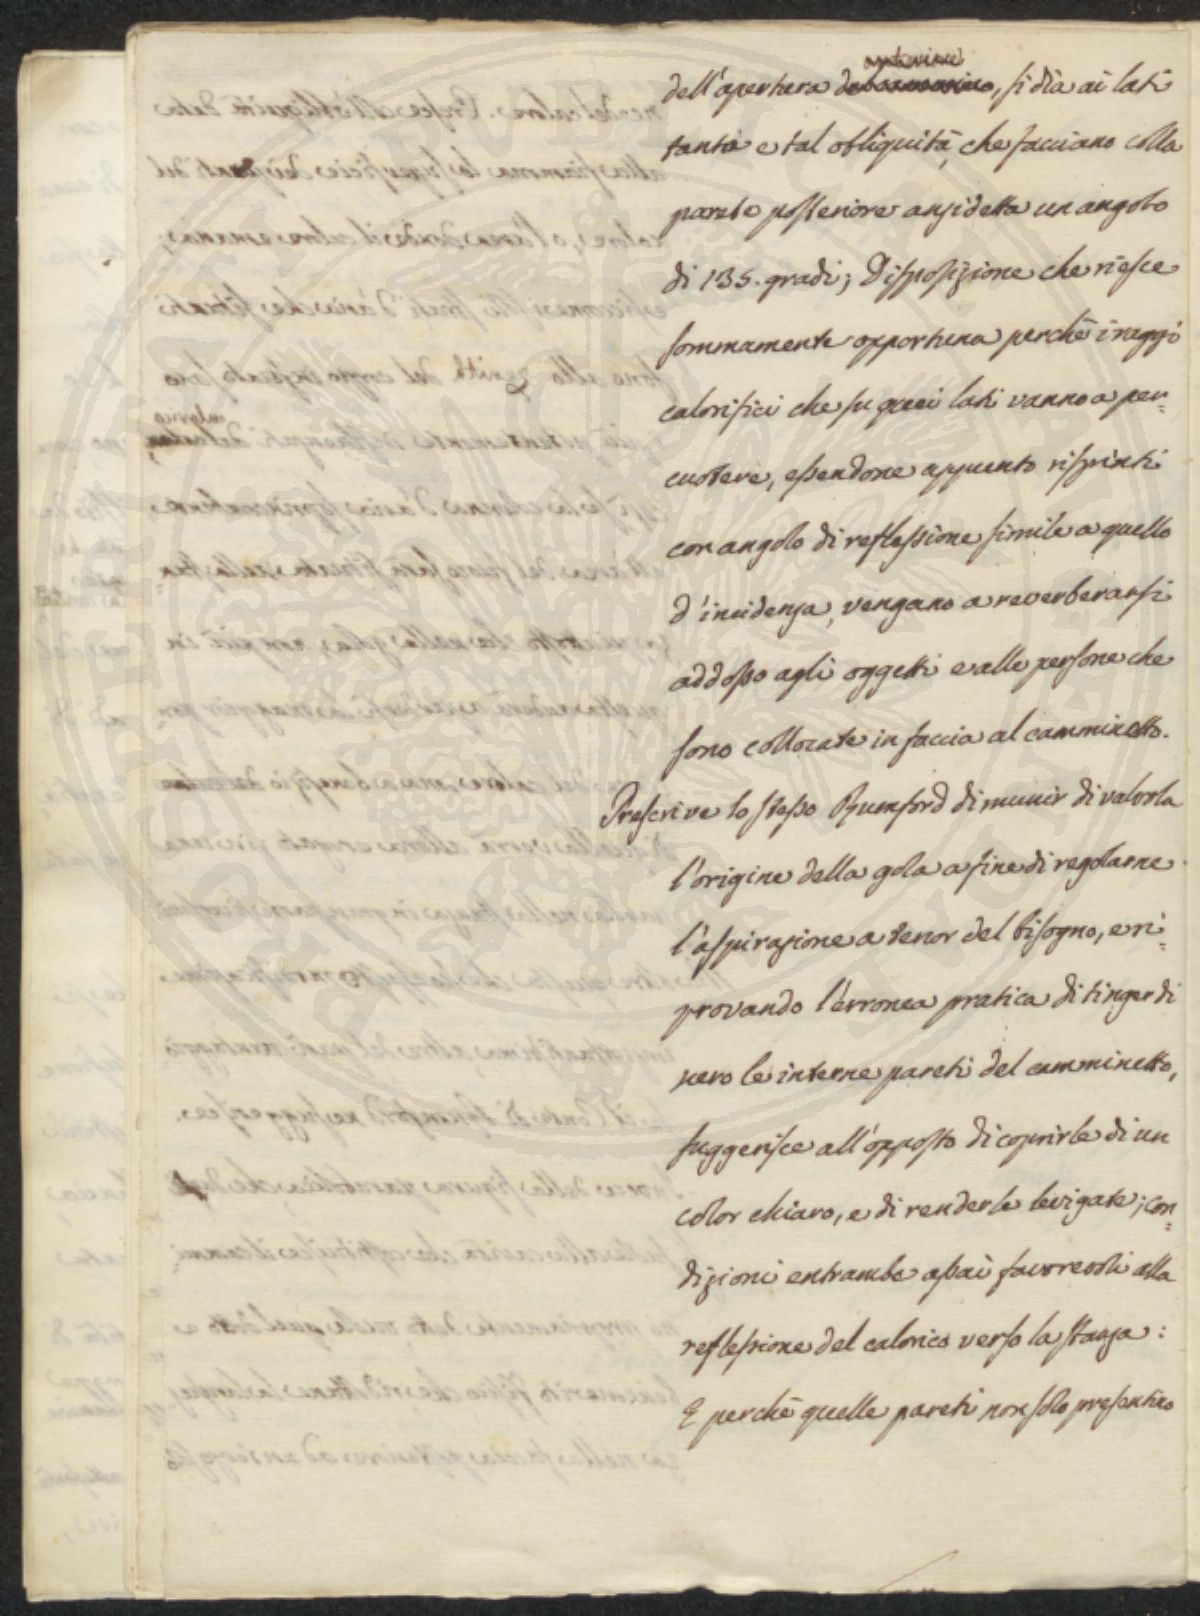 dell'apertura anteriore, si dia ai lati
tanta e tal obliquità, che facciano colla
parete posteriore ansidetta un angolo
di 135. gradi; Disposizione che riesce
sommamente opportuna perchè i raggi
calorifici che su quei lati vanno a per=
cuotere, essendone appunto rispinti
con angolo di reflessione simile a quello
d'incidenza, vengano a reverberarsi
addosso agli oggetti e alle persone che
sono collocate in faccia al camminetto.
Prescrive lo stesso Rumford di munir di valvola
l'origine della gola a fine di regolarne
l'aspirazione a tenor del bisogno, e ri=
provando l'erronea pratica di tinger di
nero le interne pareti del camminetto,
suggerisce all'opposto di coprirle di un
color chiaro, e di renderle levigate; con=
dizioni entrambe assai favorevoli alla
reflessione del calorico verso la stanza:
E perchè quelle pareti non solo presentino